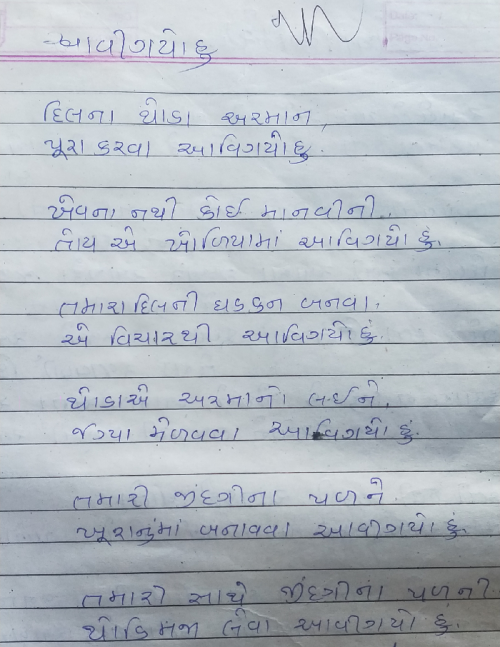 આવીગયો છુ
દિલના થોડા અરમાન,
પૂરા કરવા આવિગયો છુ.
ખેવના નથી કોઈ માનવીની.
તોય એ ખોળિયામાં આવિગયો છું.
તમારા દિલની ધડકન બનવા.
એ વિચારથી આવિગયો છું.
થોડાએ અરમાનો લઈને.
જગ્યા મેળવવા આવિગયો છું.
તમારી જીંદગીના પળને
ખૂશનુંમાં બનાવવા આવીગયો છું.
તમારી સાથે જીંદગીના પળની
થોડિ મજા લેવા આવીગયો છું.